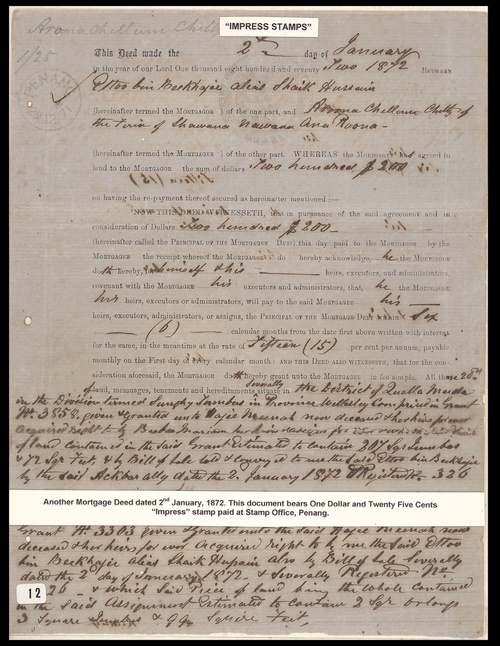 Arona Chellum Chitty
"IMPRESS STAMPS"
1/25
This Deed made the 2nd day of January
in the year of our Lord One thousand eight hundred and seventy Two 1872 BETWEEN
Ettoo bin Beekhajie alias Shaik Hussain
(hereinafter termed the MORTGAGOR) of the one part, and Arona Chellum Chitty of
the firm of Shawana Nawana Ana Roona
(hereinafter termed the MORTGAGEE) of the other part. WHEREAS the MORTGAGEE has agreed to
lend to the MORTGAGOR the sum of dollars Two hundred $ 200
on having the re-payment thereof secured as hereinafter mentioned :—
NOW THIS DEED WITNESSETH, that in pursuance of the said agreement and in
consideration of Dollars Two hundred $ 200 -
(hereinafter called the PRINCIPAL OF THE MORTGAGE DEBT) this day paid to the MORTGAGOR by the
MORTGAGEE the receipt whereof the MORTGAGOR do hereby acknowledge, he the MORTGAGOR
doth hereby, for himself & his heirs, executors, and administrators,
covenant with the MORTGAGEE his executors and administrators, that, he the MORTGAGOR
his heirs, executors or administrators, will pay to the said MORTGAGEE his
heirs, executors, administrators, or assigns, the PRINCIPAL OF THE MORTGAGE DEBT in Six
(6) calendar months from the date first above written with interest
for the same, in the meantime at the rate of Fifteen (15) per cent per annum, payable
monthly on the First day of every calendar month: AND THIS DEED ALSO WITNESSETH, that for the con-
sideration aforesaid, the MORTGAGOR doth hereby grant unto the MORTGAGEE in fee simple. All those 2
of land, messuages, tenements and hereditaments situate in Severally the District of Qualla Muda
in the Division termed Sunghy Lamboo in Province Wellesley Comprised in Grant
No. 3859. given & granted unto Hajee Meenah now deceased & her heirs
acquired right to by
of land contained in the said Grant Estimated to contain
& 72 Sqr Feet, & by Bill of Sale sold & conveyed to me the said Ettoo bin Beekhajie
by the said date the 2 January 1872 & Registered No. 326
Another Mortgage Deed dated 2nd January, 1872. This document bears One Dollar and Twenty Five Cents
"Impress" stamp paid at Stamp Office, Penang.
Grant No. 3303 given & granted unto the said Hajee Meenah now
deceased & her heirs for ever acquired right to by me the said Ettoo
bin Beekhajie alias Shaik Hussain also by Bill of Sale Severally
dated the 2nd day of January 1872 & Severally Registered No.
326 & which said Piece of land being the whole contained
in the said Assignment Estimated to contain 2 Sqr Orlongs
3 Square & 99 Square Feet,
12